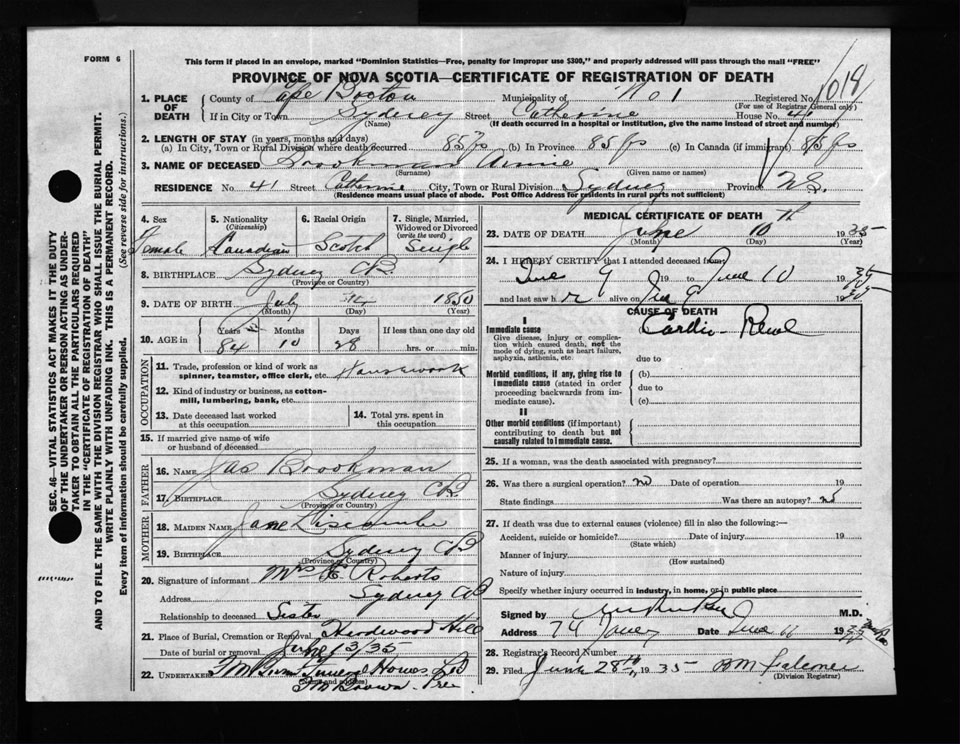 FORM 6
This form if placed in an envelope, marked "Dominion Statistics—Free, penalty for improper use $300," and properly addressed will pass through the mail "FREE"
PROVINCE OF NOVA SCOTIA—CERTIFICATE OF REGISTRATION OF DEATH
1018
1. PLACE OF DEATH
County of Cape Breton Municipality of No 1 Registered No.
(For use of Registrar General only)
If in City or Town Sydney Street Catherine House No. 41
(Name) (If death occurred in a hospital or institution, give the name instead of street and number)
2. LENGTH OF STAY (in years, months and days)
(a) In City, Town or Rural Division where death occurred 85 yrs (b) In Province 85 yrs (c) In Canada (if immigrant) 85 yrs
3. NAME OF DECEASED Brookman Annie
(Surname) (Given name or names)
RESIDENCE No 41 Street Catherine City, Town or Rural Division Sydney Province N.S.
(Residence means usual place of abode. Post Office Address for residents in rural parts not sufficient)
4. Sex Female
5. Nationality (Citizenship) Canadian
6. Racial Origin Scotch
7. Single, Married, Widowed or Divorced (write the word) Single
8. BIRTHPLACE Sydney CB
(Province or Country)
9. DATE OF BIRTH July 1850
(Month) (Day) (Year)
10. AGE in Years Months Days If less than one day old
84 10 28 hrs. or min.
OCCUPATION
11. Trade, profession or kind of work as spinner, teamster, office clerk, etc. Housework
12. Kind of industry or business, as cotton-mill, lumbering, bank, etc.
13. Date deceased last worked at this occupation
14. Total yrs. spent in this occupation
15. If married give name of wife or husband of deceased
FATHER
16. NAME Jas Brookman
17. BIRTHPLACE Sydney CB
(Province or Country)
MOTHER
18. MAIDEN NAME Jane Liscombe
19. BIRTHPLACE Sydney CB
(Province or Country)
20. Signature of informant Mrs Roberts
Address Sydney CB
Relationship to deceased Sister
21. Place of Burial, Cremation or Removal Hardwood Hill
Date of burial or removal June 13/35
22. UNDERTAKER
(Name and address)
MEDICAL CERTIFICATE OF DEATH
23. DATE OF DEATH June 10 th 1935
(Month) (Day) (Year)
24. I HEREBY CERTIFY that I attended deceased from:
June 9 19 to June 10 1935
and last saw h r alive on June 9 1935
CAUSE OF DEATH
I
Immediate cause Cardio-Renal
Give disease, injury or complication which caused death, not the mode of dying, such as heart failure, asphyxia, asthenia, etc.
due to
Morbid conditions, if any, giving rise to immediate cause (stated in order proceeding backwards from immediate cause).
(b)
due to
(c)
II
Other morbid conditions (if important) contributing to death but not causally related to immediate cause.
25. If a woman, was the death associated with pregnancy?
26. Was there a surgical operation? no Date of operation 19
State findings Was there an autopsy? no
27. If death was due to external causes (violence) fill in also the following:—
Accident, suicide or homicide? Date of injury 19
(State which)
Manner of injury
(How sustained)
Nature of injury
Specify whether injury occurred in industry, in home, or in public place
Signed by M.D.
Address 74 Date June 11 19
28. Registrar's Record Number
29. Filed June 28th 1935
(Division Registrar)
SEC. 46—VITAL STATISTICS ACT MAKES IT THE DUTY OF THE UNDERTAKER OR PERSON ACTING AS UNDERTAKER TO OBTAIN ALL THE PARTICULARS REQUIRED IN THE "CERTIFICATE OF REGISTRATION OF DEATH" AND TO FILE THE SAME WITH THE DIVISION REGISTRAR WHO SHALL ISSUE THE BURIAL PERMIT.
WRITE PLAINLY WITH UNFADING INK. THIS IS A PERMANENT RECORD.
Every item of information should be carefully supplied. (See reverse side for instructions.)